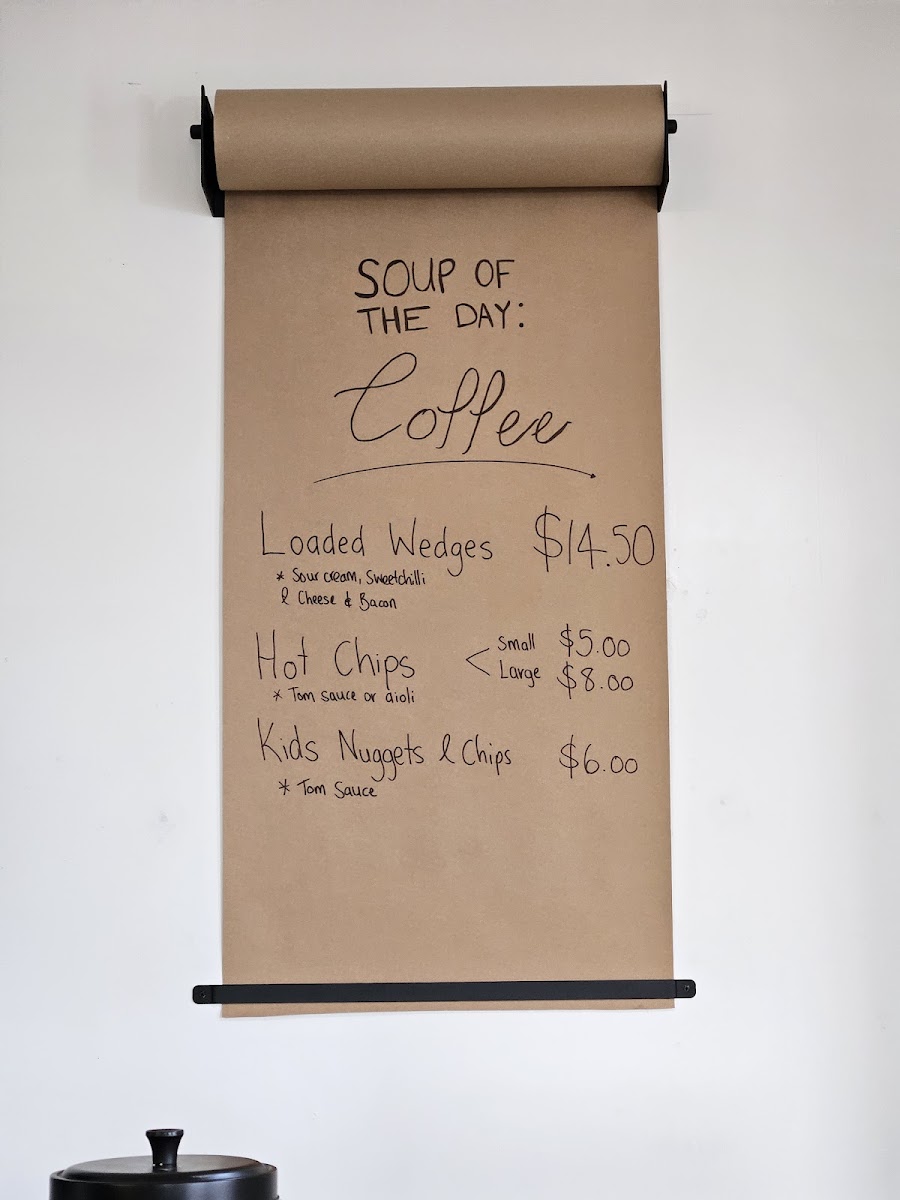 SOUP OF
THE DAY:
Coffee
Loaded Wedges $14.50
* Sour cream, Sweetchilli
& Cheese & Bacon
Hot Chips < Small $5.00
Large $8.00
* Tom sauce or aioli
Kids Nuggets & Chips $6.00
* Tom Sauce